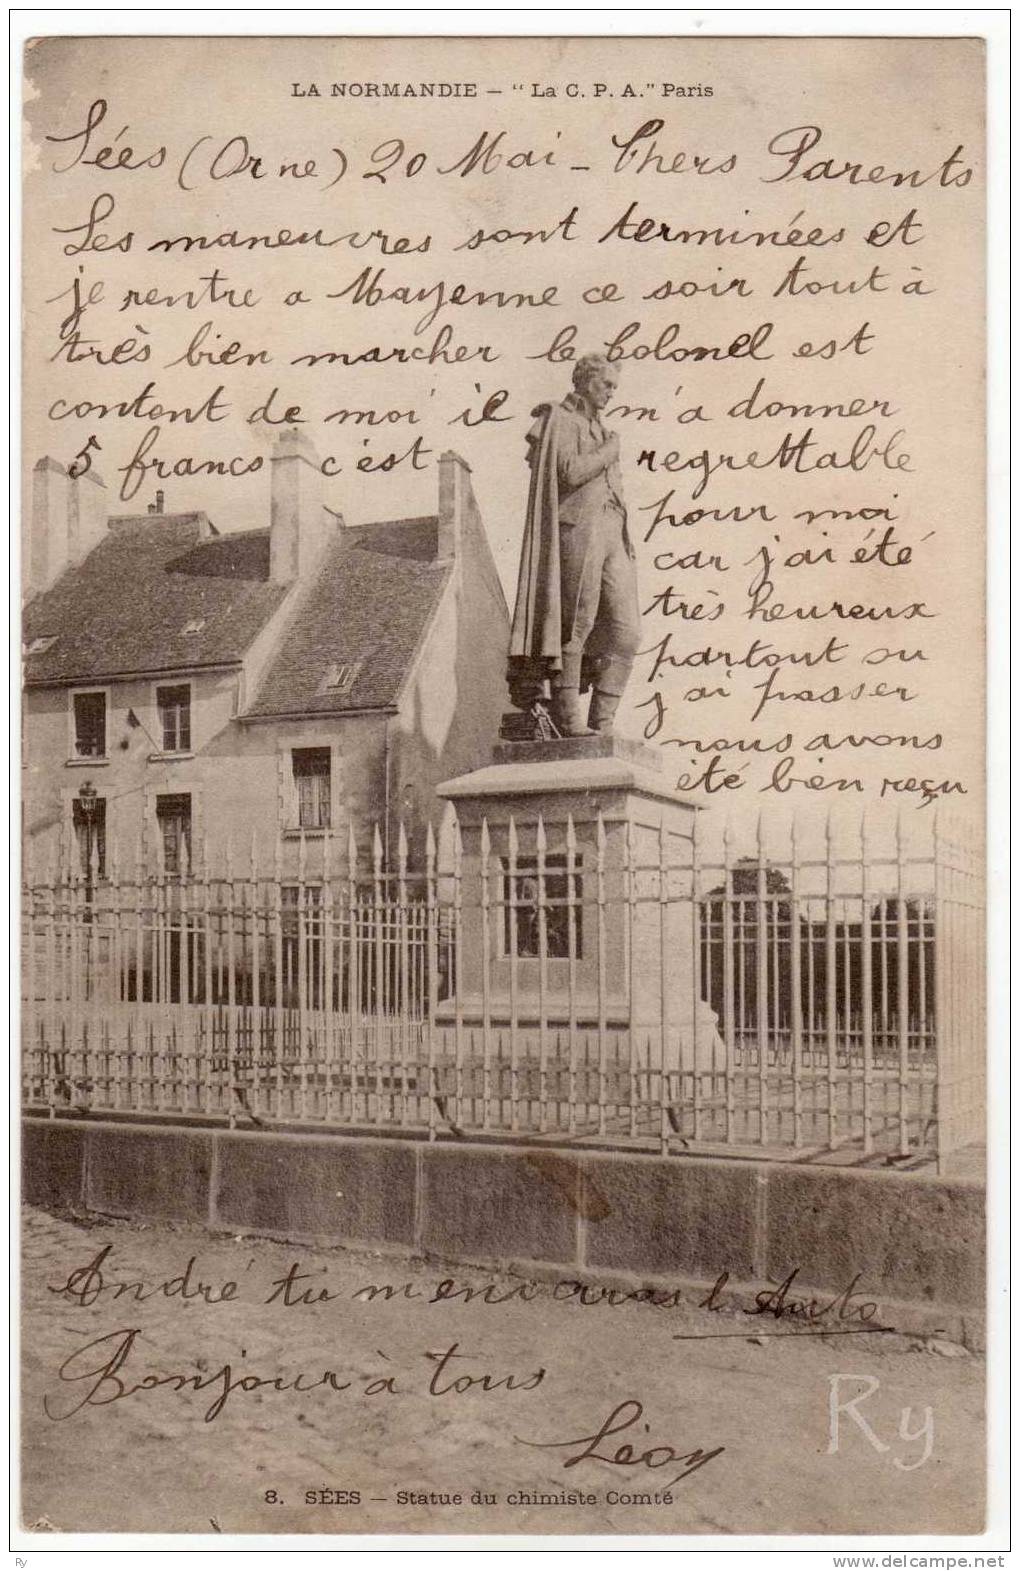 LA NORMANDIE – “La C. P. A.” Paris
Sées (Orne) 20 Mai – Chers Parents
Les maneuvres sont terminées et
je rentre a Mayenne ce soir tout à
très bien marcher le Colonel est
content de moi il m'a donner
5 francs c'est regrettable
pour moi
car j'ai été
très heureux
partout ou
j'ai passer
nous avons
été bien reçu
André tu menvoras l'Auto
Bonjour à tous
Léon
Ry
8. SÉES – Statue du chimiste Comté
Ry
www.delcampe.net